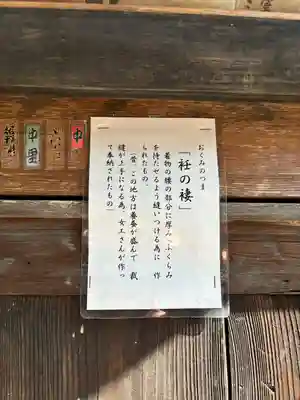 おくみのつま
「衽の褄」
着物の褄の部分に厚み、ふくらみ
を持たせるよう縫いつける為に 作
られたもの。
(昔、この地方は養蚕が盛んで 裁
縫が上手になる為、女工さんが作っ
て奉納されたもの)
中
中里